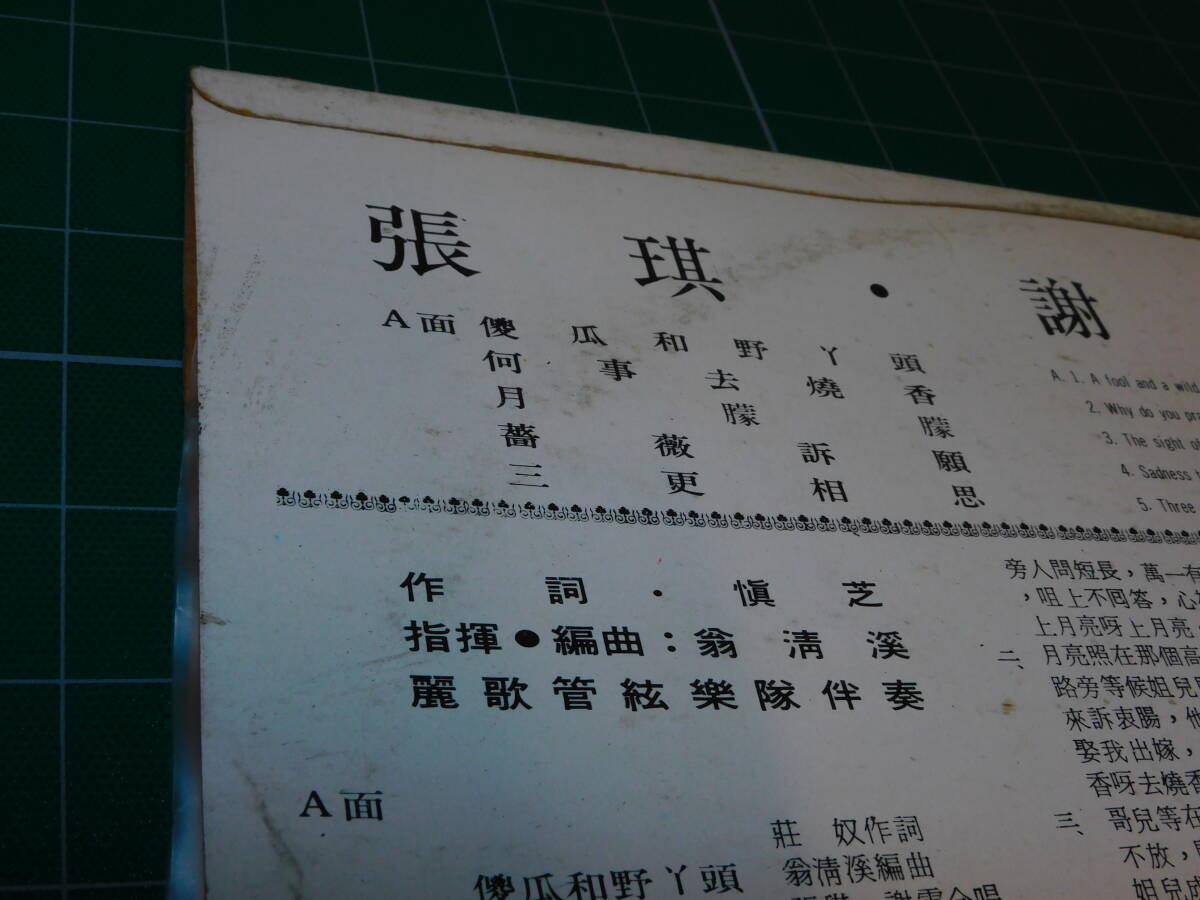 張琪・謝
A面 傻瓜和野丫頭
何事去燒香
月朦朧
薔薇訴願
三更相思
A. 1. A fool and a wild
2. Why do you pra
3. The sight of
4. Sadness
5. Three
作詞・慎芝
指揮●編曲：翁清溪
麗歌管絃樂隊伴奏
旁人問短長，萬一有
，咀上不回答，心
上月亮呀上月亮
二、月亮照在那個高
路旁等候姐兒
來訴衷腸，
娶我出嫁，
香呀去燒香
三、哥兒等在
不放，
姐兒
A面
傻瓜和野丫頭
莊奴作詞
翁清溪編曲
張琪、謝雷合唱